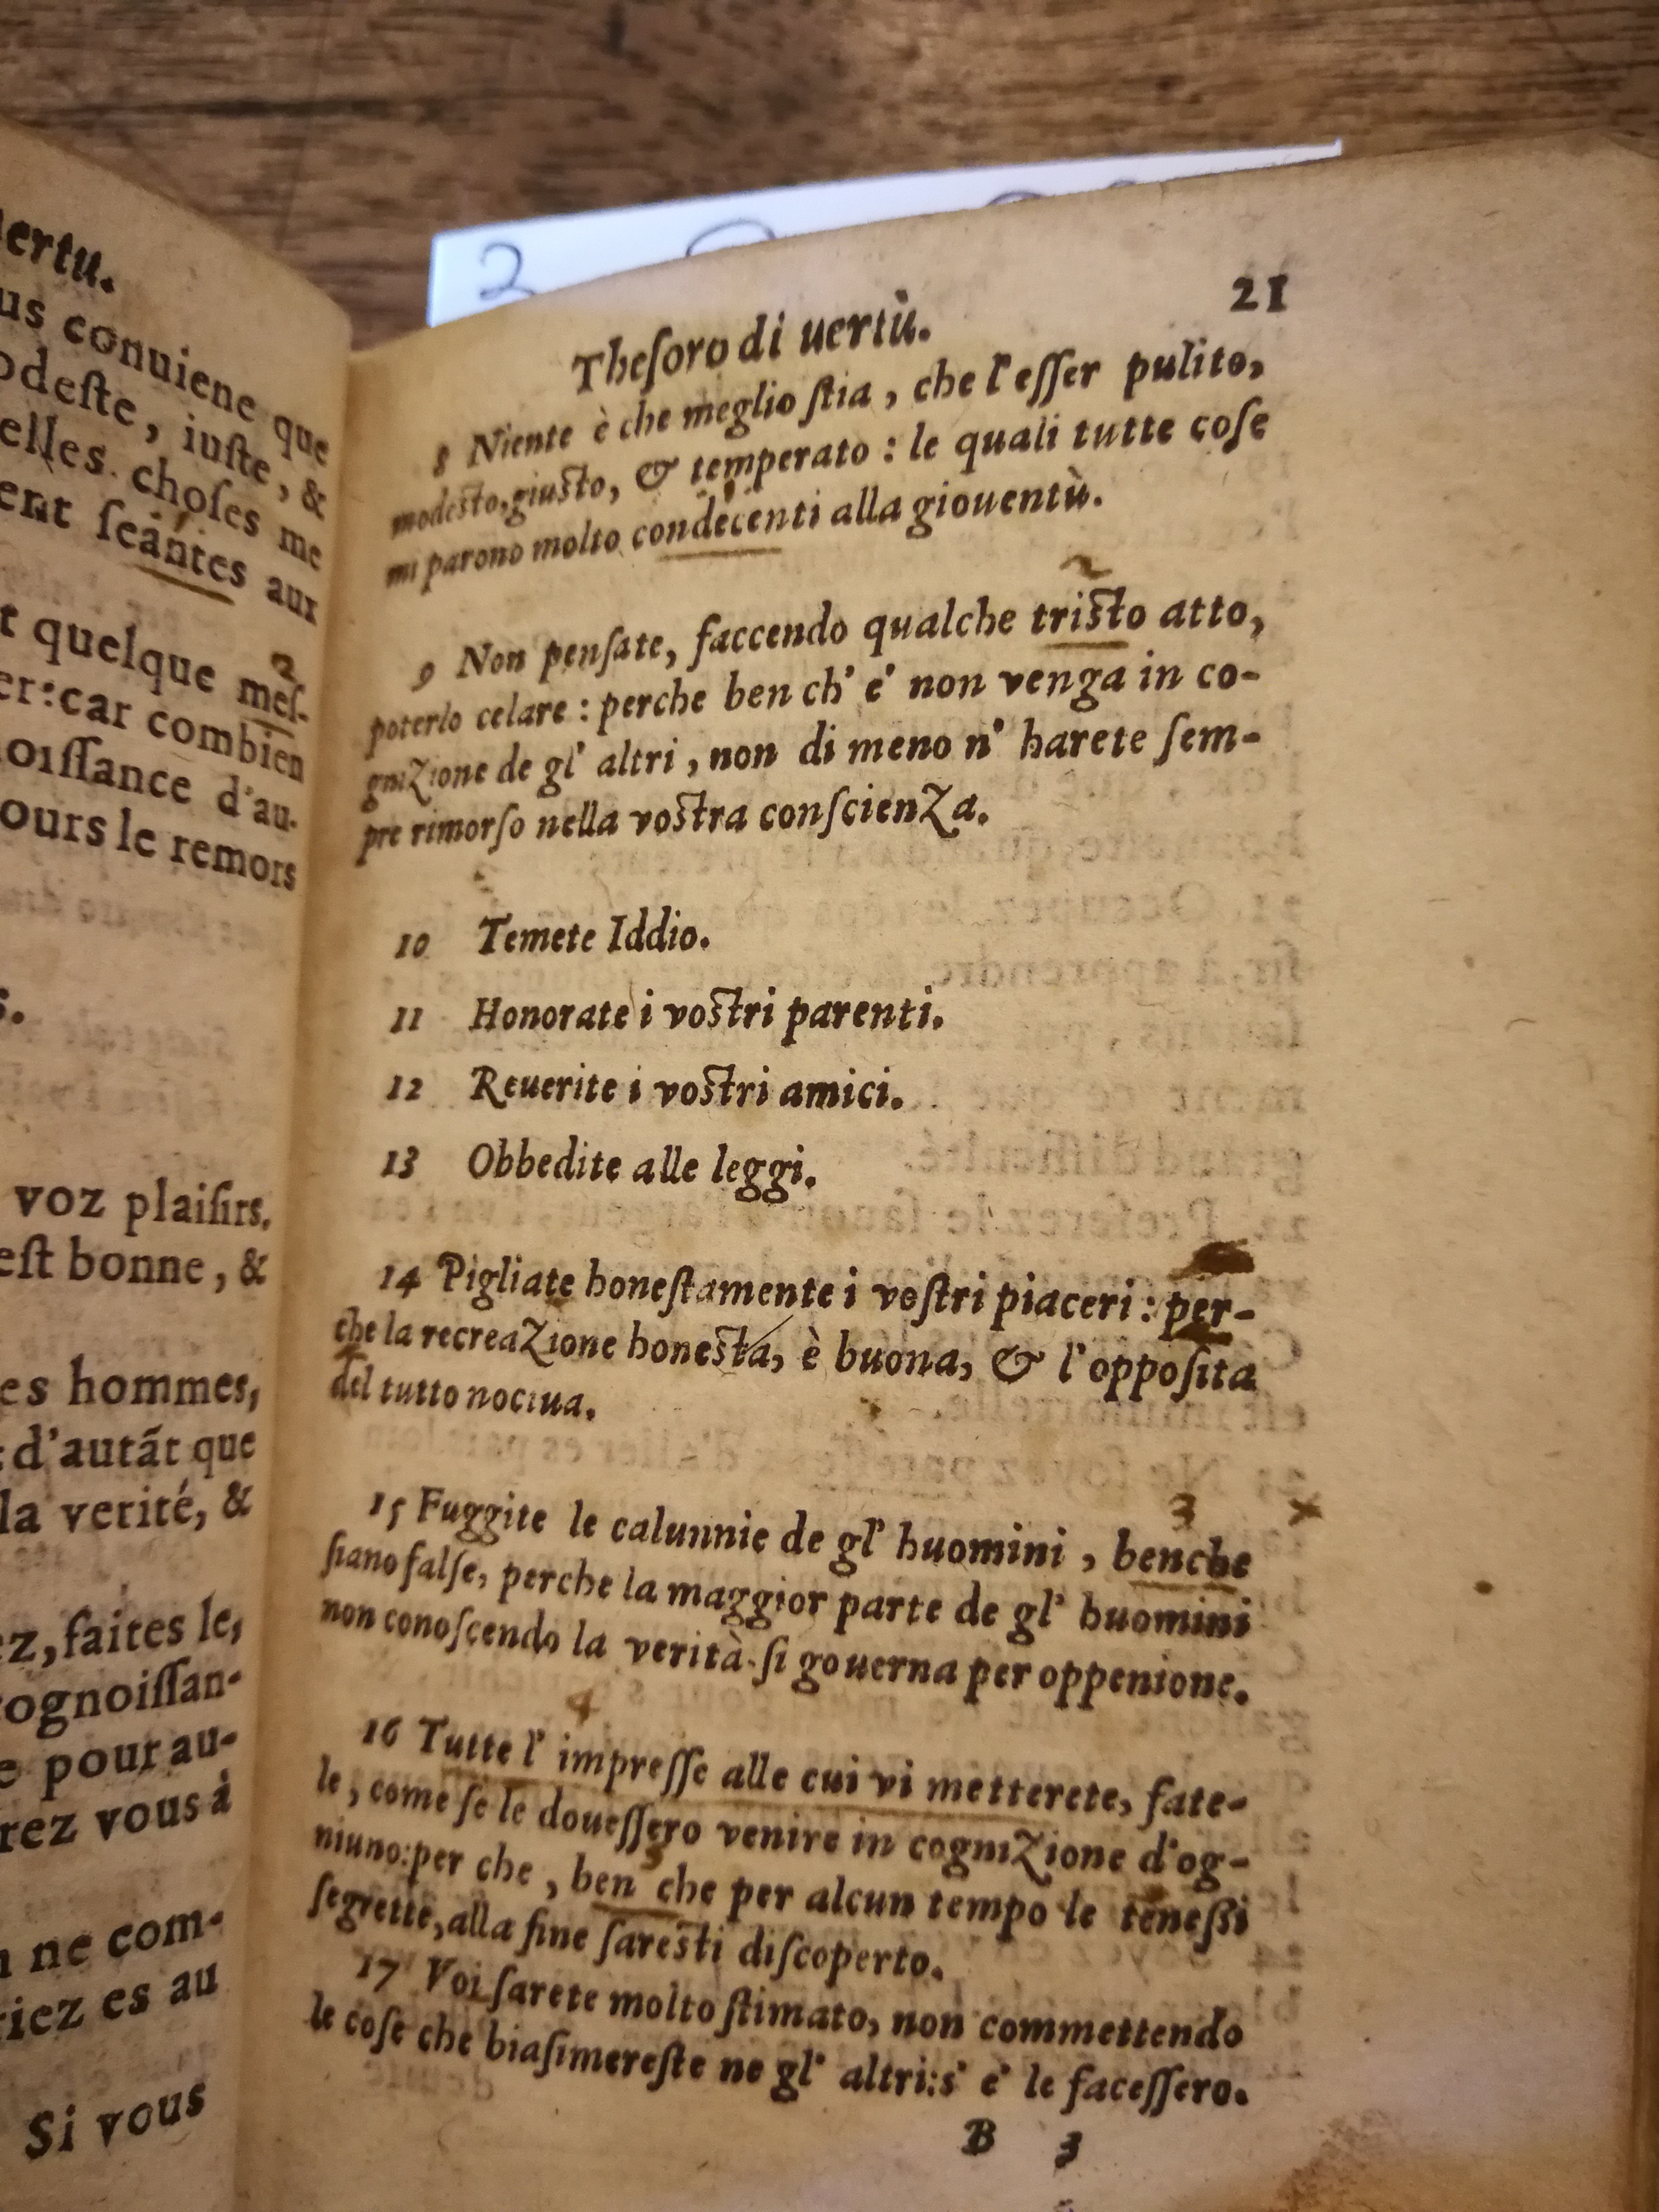 uertu.
us conuiene que
odeſte, iuſte, &
elles choſes me
ent ſeãtes aux
t quelque meſ-
er: car combien
oiſſance d'au-
ours le remors
s.
voz plaiſirs,
eſt bonne, &
es hommes,
d'autãt que
la verité, &
ez, faites le,
cognoiſſan-
e pour au-
rez vous à
n ne com-
riez es au
Si vous
2
Theſoro di uertù.
21
8 Niente è che meglio ſtia, che l'eſſer pulito,
modeſto, giuſto, & temperato : le quali tutte coſe
mi parono molto condecenti alla giouentù.
9 Non penſate, faccendo qualche triſto atto,
poterlo celare : perche ben ch' e' non venga in co-
gnizione de gl' altri, non di meno n' harete ſem-
pre rimorſo nella voſtra conſcienza.
10 Temete Iddio.
11 Honorate i voſtri parenti.
12 Reuerite i voſtri amici.
13 Obbedite alle leggi.
14 Pigliate honeſtamente i voſtri piaceri : per-
che la recreazione honeſta, è buona, & l'oppoſita
del tutto nociua.
15 Fuggite le calunnie de gl' huomini, benche
ſiano falſe, perche la maggior parte de gl' huomini
non conoſcendo la verità ſi gouerna per oppenione.
16 Tutte l' impreſſe alle cui vi metterete, fate-
le, come ſe le doueſſero venire in cognizione d'og-
niuno: per che, ben che per alcun tempo le teneſſi
ſegrette, alla fine ſareſti diſcoperto.
17 Voi ſarete molto ſtimato, non commettendo
le coſe che biaſimereſte ne gl' altri: s' e' le faceſſero.
B 3